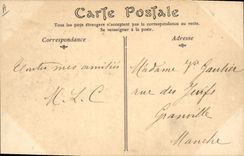 Carte Postale
Tous les pays étrangers n'acceptent pas la correspondance au recto.
Se renseigner à la poste.
Correspondance
Adresse
Toutes mes amitiés
M. L. C
Madame Vve Gautier
rue des Juifs
Granville
Manche